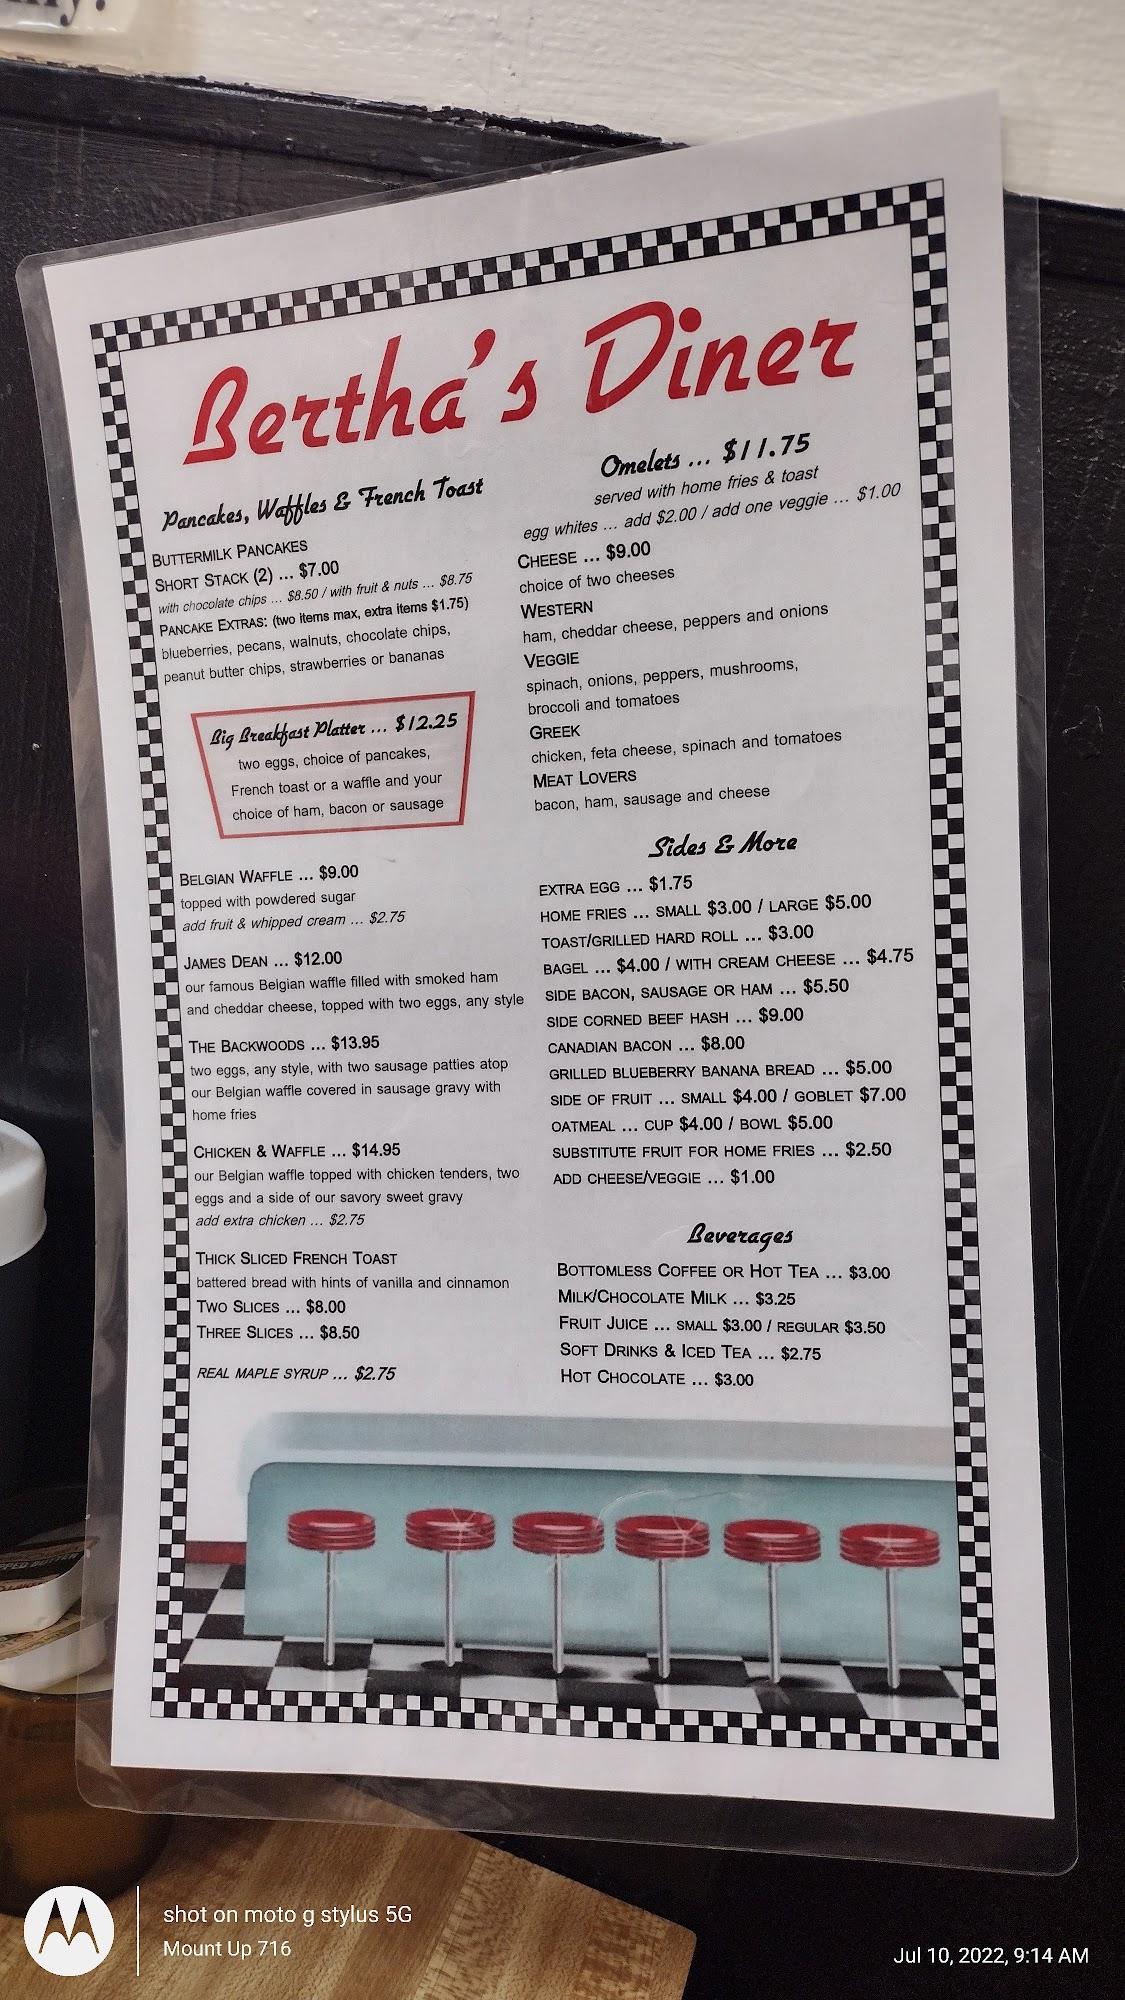 Bertha's Diner
Pancakes, Waffles & French Toast
BUTTERMILK PANCAKES
SHORT STACK (2) ... $7.00
with chocolate chips ... $8.50 / with fruit & nuts ... $8.75
PANCAKE EXTRAS: (two items max, extra items $1.75)
blueberries, pecans, walnuts, chocolate chips,
peanut butter chips, strawberries or bananas
Big Breakfast Platter ... $12.25
two eggs, choice of pancakes,
French toast or a waffle and your
choice of ham, bacon or sausage
BELGIAN WAFFLE ... $9.00
topped with powdered sugar
add fruit & whipped cream ... $2.75
JAMES DEAN ... $12.00
our famous Belgian waffle filled with smoked ham
and cheddar cheese, topped with two eggs, any style
THE BACKWOODS ... $13.95
two eggs, any style, with two sausage patties atop
our Belgian waffle covered in sausage gravy with
home fries
CHICKEN & WAFFLE ... $14.95
our Belgian waffle topped with chicken tenders, two
eggs and a side of our savory sweet gravy
add extra chicken ... $2.75
THICK SLICED FRENCH TOAST
battered bread with hints of vanilla and cinnamon
TWO SLICES ... $8.00
THREE SLICES ... $8.50
REAL MAPLE SYRUP ... $2.75
Omelets ... $11.75
served with home fries & toast
egg whites ... add $2.00 / add one veggie ... $1.00
CHEESE ... $9.00
choice of two cheeses
WESTERN
ham, cheddar cheese, peppers and onions
VEGGIE
spinach, onions, peppers, mushrooms,
broccoli and tomatoes
GREEK
chicken, feta cheese, spinach and tomatoes
MEAT LOVERS
bacon, ham, sausage and cheese
Sides & More
EXTRA EGG ... $1.75
HOME FRIES ... SMALL $3.00 / LARGE $5.00
TOAST/GRILLED HARD ROLL ... $3.00
BAGEL ... $4.00 / WITH CREAM CHEESE ... $4.75
SIDE BACON, SAUSAGE OR HAM ... $5.50
SIDE CORNED BEEF HASH ... $9.00
CANADIAN BACON ... $8.00
GRILLED BLUEBERRY BANANA BREAD ... $5.00
SIDE OF FRUIT ... SMALL $4.00 / GOBLET $7.00
OATMEAL ... CUP $4.00 / BOWL $5.00
SUBSTITUTE FRUIT FOR HOME FRIES ... $2.50
ADD CHEESE/VEGGIE ... $1.00
Beverages
BOTTOMLESS COFFEE OR HOT TEA ... $3.00
MILK/CHOCOLATE MILK ... $3.25
FRUIT JUICE ... SMALL $3.00 / REGULAR $3.50
SOFT DRINKS & ICED TEA ... $2.75
HOT CHOCOLATE ... $3.00
shot on moto g stylus 5G
Mount Up 716
Jul 10, 2022, 9:14 AM